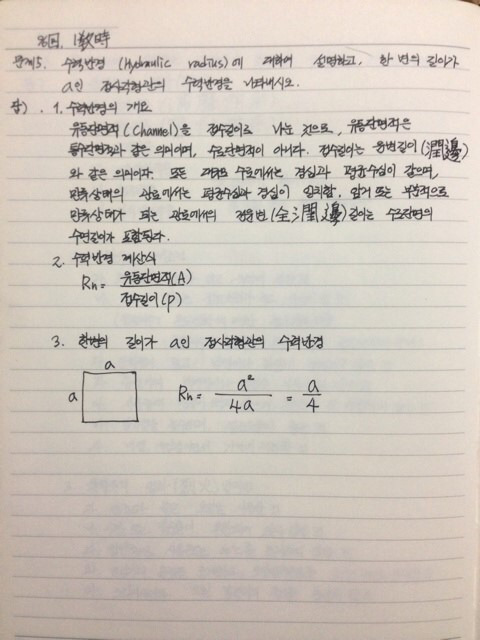 96回, 1敎時
문제5. 수력반경 (Hydraulic radius)에 대하여 설명하고, 한 변의 길이가
a인 정사각형관의 수력반경을 나타내시오.
답) . 1. 수력반경의 개요
유동단면적 (Channel)을 접수길이로 나눈 것으로, 유동단면적은
통수단면적과 같은 의미이며, 수로단면적이 아니다. 접수길이는 윤변길이 (潤邊)
와 같은 의미이다. 또한 개수로 수로에서는 경심과 평균수심이 같으며,
만류상태의 관로에서는 평균수심과 경심이 일치함. 암거 또는 부분적으로
만류상태가 되는 관로에서의 전윤변 (全潤邊)길이는 수로단면의
수면길이가 포함된다.
2. 수력반경 계산식
Rh = 유동단면적(A)
접수길이(P)
3. 한변의 길이가 a인 정사각형관의 수력반경
a
a
Rh = a² / 4a = a / 4